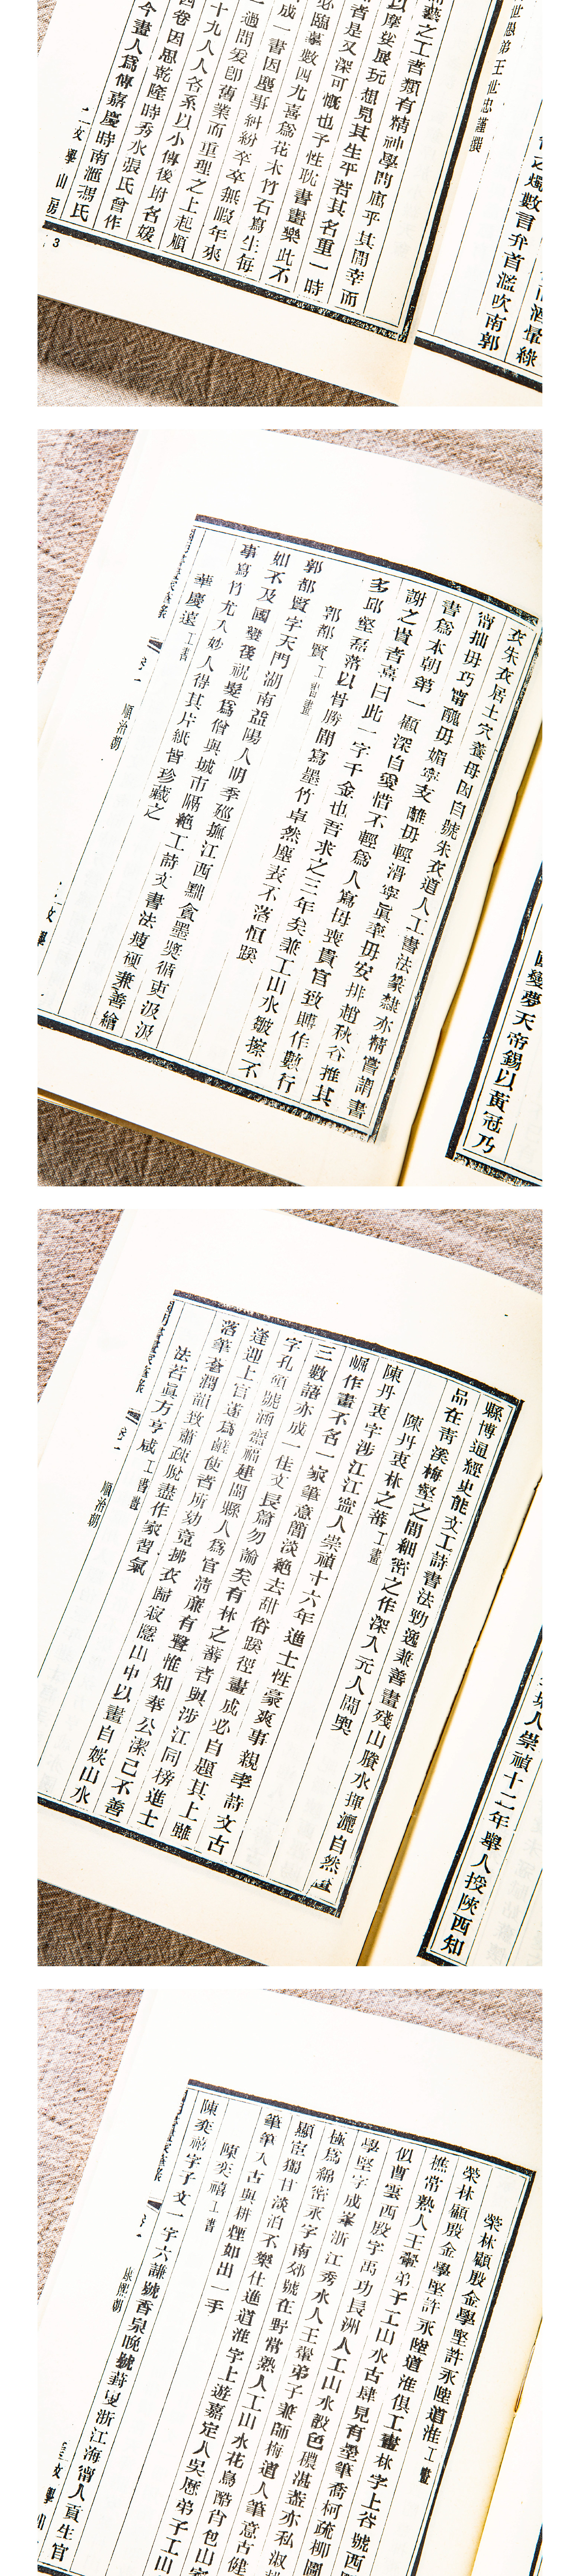 世愚弟王世忠謹撰
之燭數言弁首濫吹南郭
藝之工者類有精神學問寓乎其間幸而
以摩娑展玩想見其生平若其名重一時
者是又深可慨也予性耽書畫樂此不
必臨摹數四尤喜爲花木竹石寫生每
成一書因塵事糾紛卒卒無暇年來
過問爰卽舊業而重理之上起順
十九人人各系以小傳後坿名媛
四卷因思乾隆時秀水張氏曾作
今畫人爲傳嘉慶時南滙馮氏
文學山房
3
國變夢天帝錫以黃冠乃
衣朱衣居土穴養母因自號朱衣道人工書法篆隸亦精嘗謂書
甯拙毋巧甯醜毋媚寧支離毋輕滑寧眞率毋安排趙秋谷推其
書爲本朝第一顧深自愛惜不輕爲人寫母喪貴官致賻作數行
謝之貴者喜曰此一字千金也吾求之三年矣兼工山水皴擦不
多邱壑磊落以骨勝間寫墨竹卓然塵表不落恒蹊
郭都賢工書畫
郭都賢字天門湖南益陽人明季廵撫江西黜貪墨奬循吏汲汲
如不及國變後祝髮爲僧與城市隔絶工詩文書法瘦硬兼善繪
事寫竹尤入妙人得其片紙皆珍藏之
華慶遠工書
卷一 順治朝
文學
人崇禎十二年舉人授陝西知
縣博通經史能文工詩書法勁逸兼善畫殘山賸水揮灑自然
品在靑溪梅壑之間細密之作深入元人閫奧
陳丹衷林之蕃工畫
陳丹衷字涉江江甯人崇禎十六年進士性豪爽事親孝詩文古
崛作畫不名一家筆意簡淡絶去甜俗蹊徑畫成必自題其上雖
三數語亦成一佳文長篇勿論矣有林之蕃者與涉江同榜進士
字孔碩號涵齋福建閩縣人爲官淸廉有聲惟知奉公潔己不善
逢迎上官遂爲讒使者所劾竟拂衣歸寂隱山中以畫自娛山水
落筆蒼潤韻致蕭疎脫盡作家習氣
法若眞方亨咸工書畫
卷一 順治朝
榮林顧殷金學堅許永陸道淮工畫
榮林顧殷金學堅許永陸道淮俱工畫林字上谷號西
樵常熟人王翬弟子工山水古肆見有墨筆喬柯疏柳圖
似曹雲西殷字禹功長洲人工山水設色穠湛
學堅字成峯浙江秀水人王翬弟子兼師梅道人筆意古健
極爲綿密永字南郊號在野常熟人工山水花鳥酷肖包山
顯宦獨甘淡泊不樂仕進道淮字上遊嘉定人吳歷弟子工山
筆筆入古與耕煙如出一手
陳奕禧工書
陳奕禧字子文一字六謙號香泉晚號葑叟浙江海甯人貢生官
康熙朝
文學山